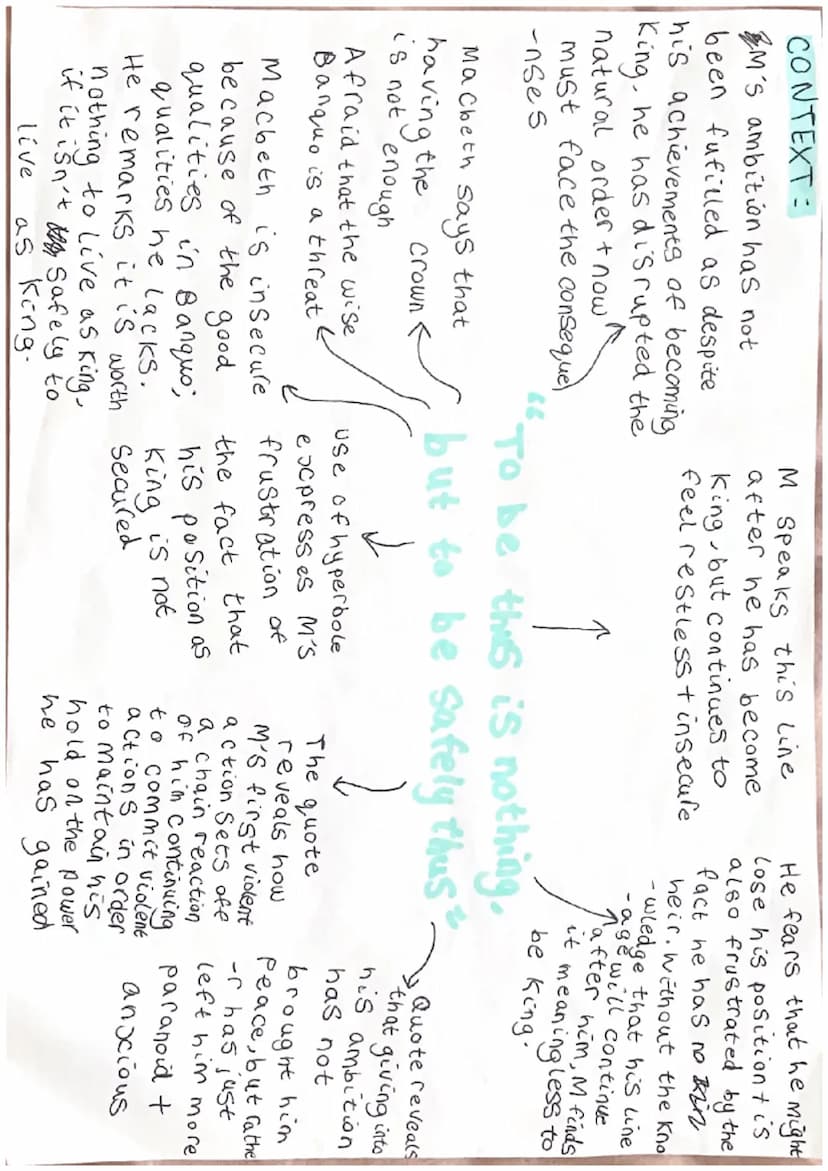 CONTEXT:
M's ambition has not
been fufilled as despite
his achievements of becoming
King, he has disrupted the
natural order + now
must face the conseque
-nses
M speaks this line
after he has become
King, but continues to
feel restless + insecure
He fears that he might
lose his position + is
also frustrated by the
fact he has no
heir. Without the kno
-wledge that his line
-age will continue
after him, M finds
it meaningless to
be king.
"To be thus is nothing,
but to be safely thus"
Macbeth says that
having the crown
is not enough
Afraid that the wise
Banquo is a threat
Macbeth is insecure
because of the good
qualities in Banquo;
qualities he lacks.
He remarks it is worth
nothing to live as king,
if it isn't safely to
live as king.
use of hyperbole
expresses M's
frustration of
the fact that
his position as
King is not
secured
The quote
reveals how
M's first violent
action sets off
a chain reaction
of him continuing
to commit violent
actions in order
to maintain his
hold on the power
he has gained
Quote reveals
that giving into
his ambition
has not
brought him
peace, but rathe
-r has just
left him more
paranoid +
anxious